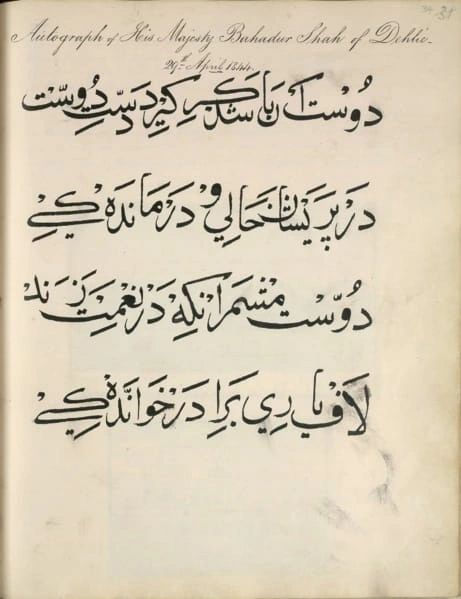 Autograph of His Majesty Bahadur Shah of Dehlie
29th April 1844.
دوست آن باشد که گیرد دست دوست
در پریشان حالي و درمانده کي
دوست مشمر آنکه در نعمت زند
لاف یاري برادر خوانده کي